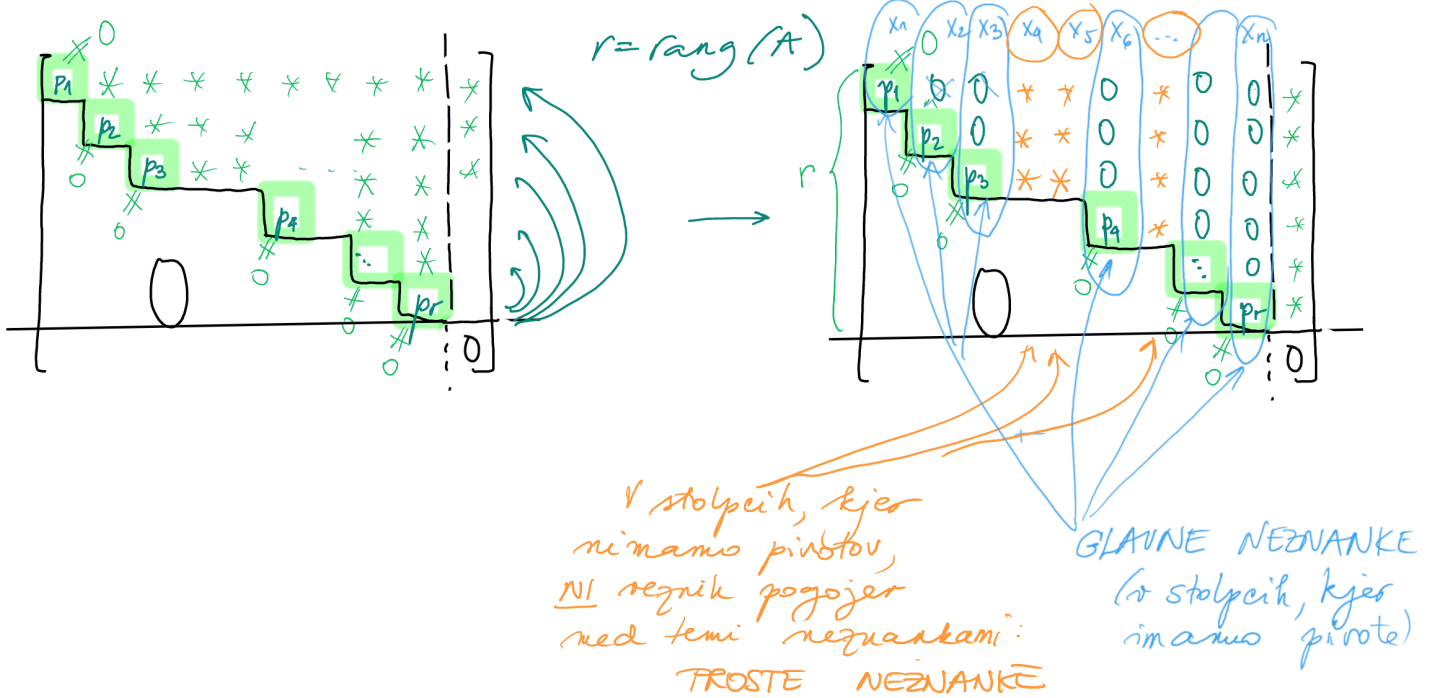 r = rang (A)
0
p1 * * * * * * * * *
p2 * * * * * *
p3 * * . . . * * *
0 p4 * *
0 0 ⋱ *
0 pr
0 0 0
→
x1 x2 x3 x4 x5 x6 ... xn
0
p1 0 0 * * 0 * 0 0 *
p2 0 * * 0 * 0 0 *
r
0 p3 * * 0 * 0 0 *
0 p4 * 0 0 *
0 0 ⋱ 0 *
0 pr *
0 0 0
V stolpcih, kjer
nimamo pivotov,
NI veznih pogojev
med temi neznankami:
PROSTE NEZNANKE
GLAVNE NEZNANKE
(v stolpcih, kjer
imamo pivote)